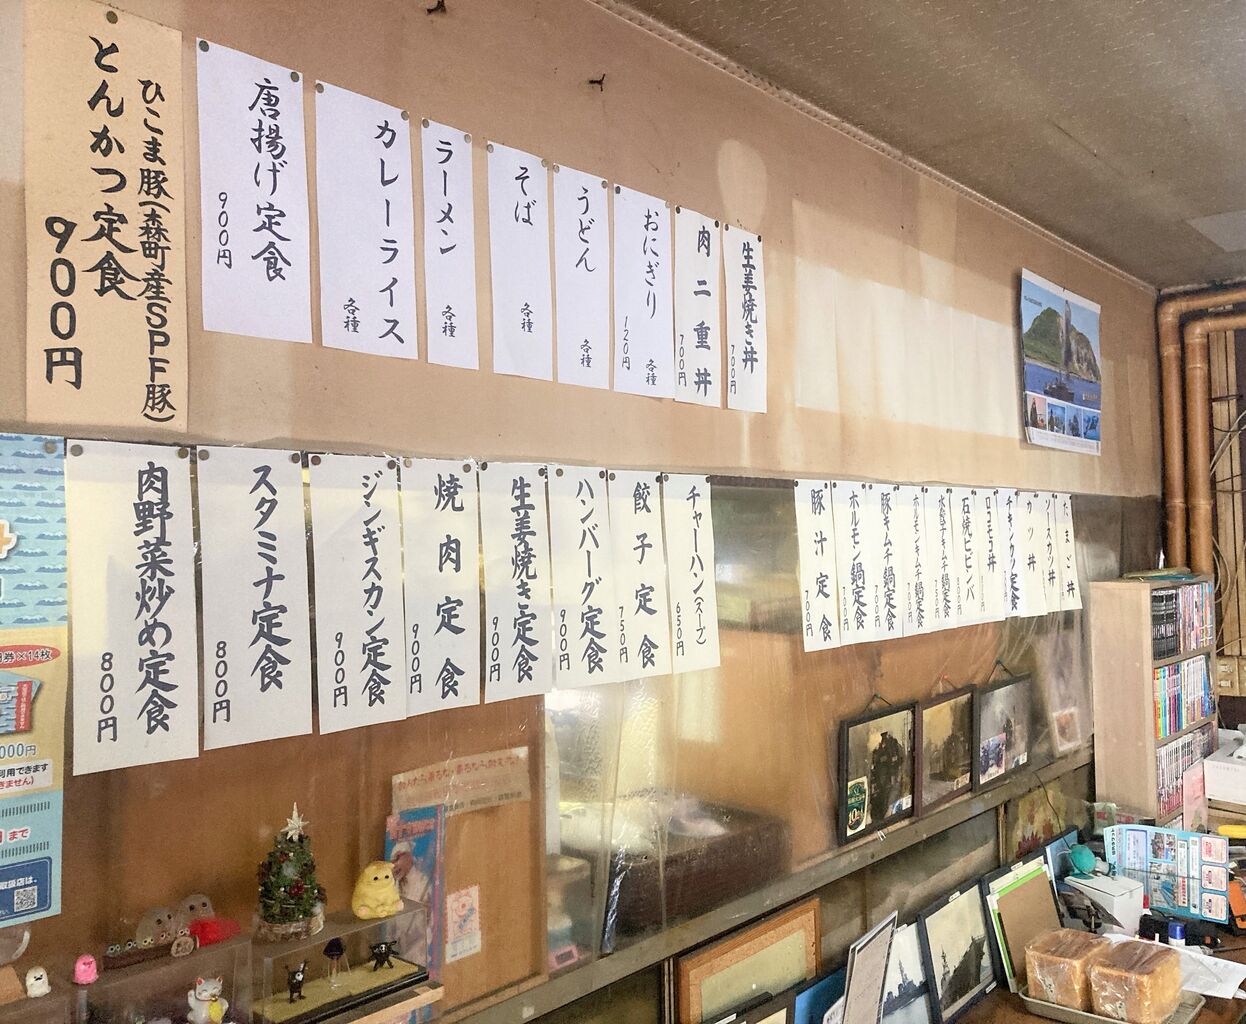 ひこま豚(森町産SPF豚)
とんかつ定食
900円
唐揚げ定食
900円
カレーライス
各種
ラーメン
各種
そば
各種
うどん
各種
おにぎり
120円
各種
肉二重丼
700円
生姜焼き丼
700円
肉野菜炒め定食
800円
スタミナ定食
800円
ジンギスカン定食
900円
焼肉定食
900円
生姜焼き定食
900円
ハンバーグ定食
900円
餃子定食
750円
チャーハン(スープ)
650円
豚汁定食
700円
ホルモン鍋定食
700円
豚キムチ鍋定食
700円
ホルモンキムチ鍋定食
水餃子キムチ鍋定食
石焼ビビンバ
ロコモコ丼
チキンカツ定食
カツ丼
ソースカツ丼
たまご丼
券×14枚
000円
利用できます
きません)
まで
取扱店は、